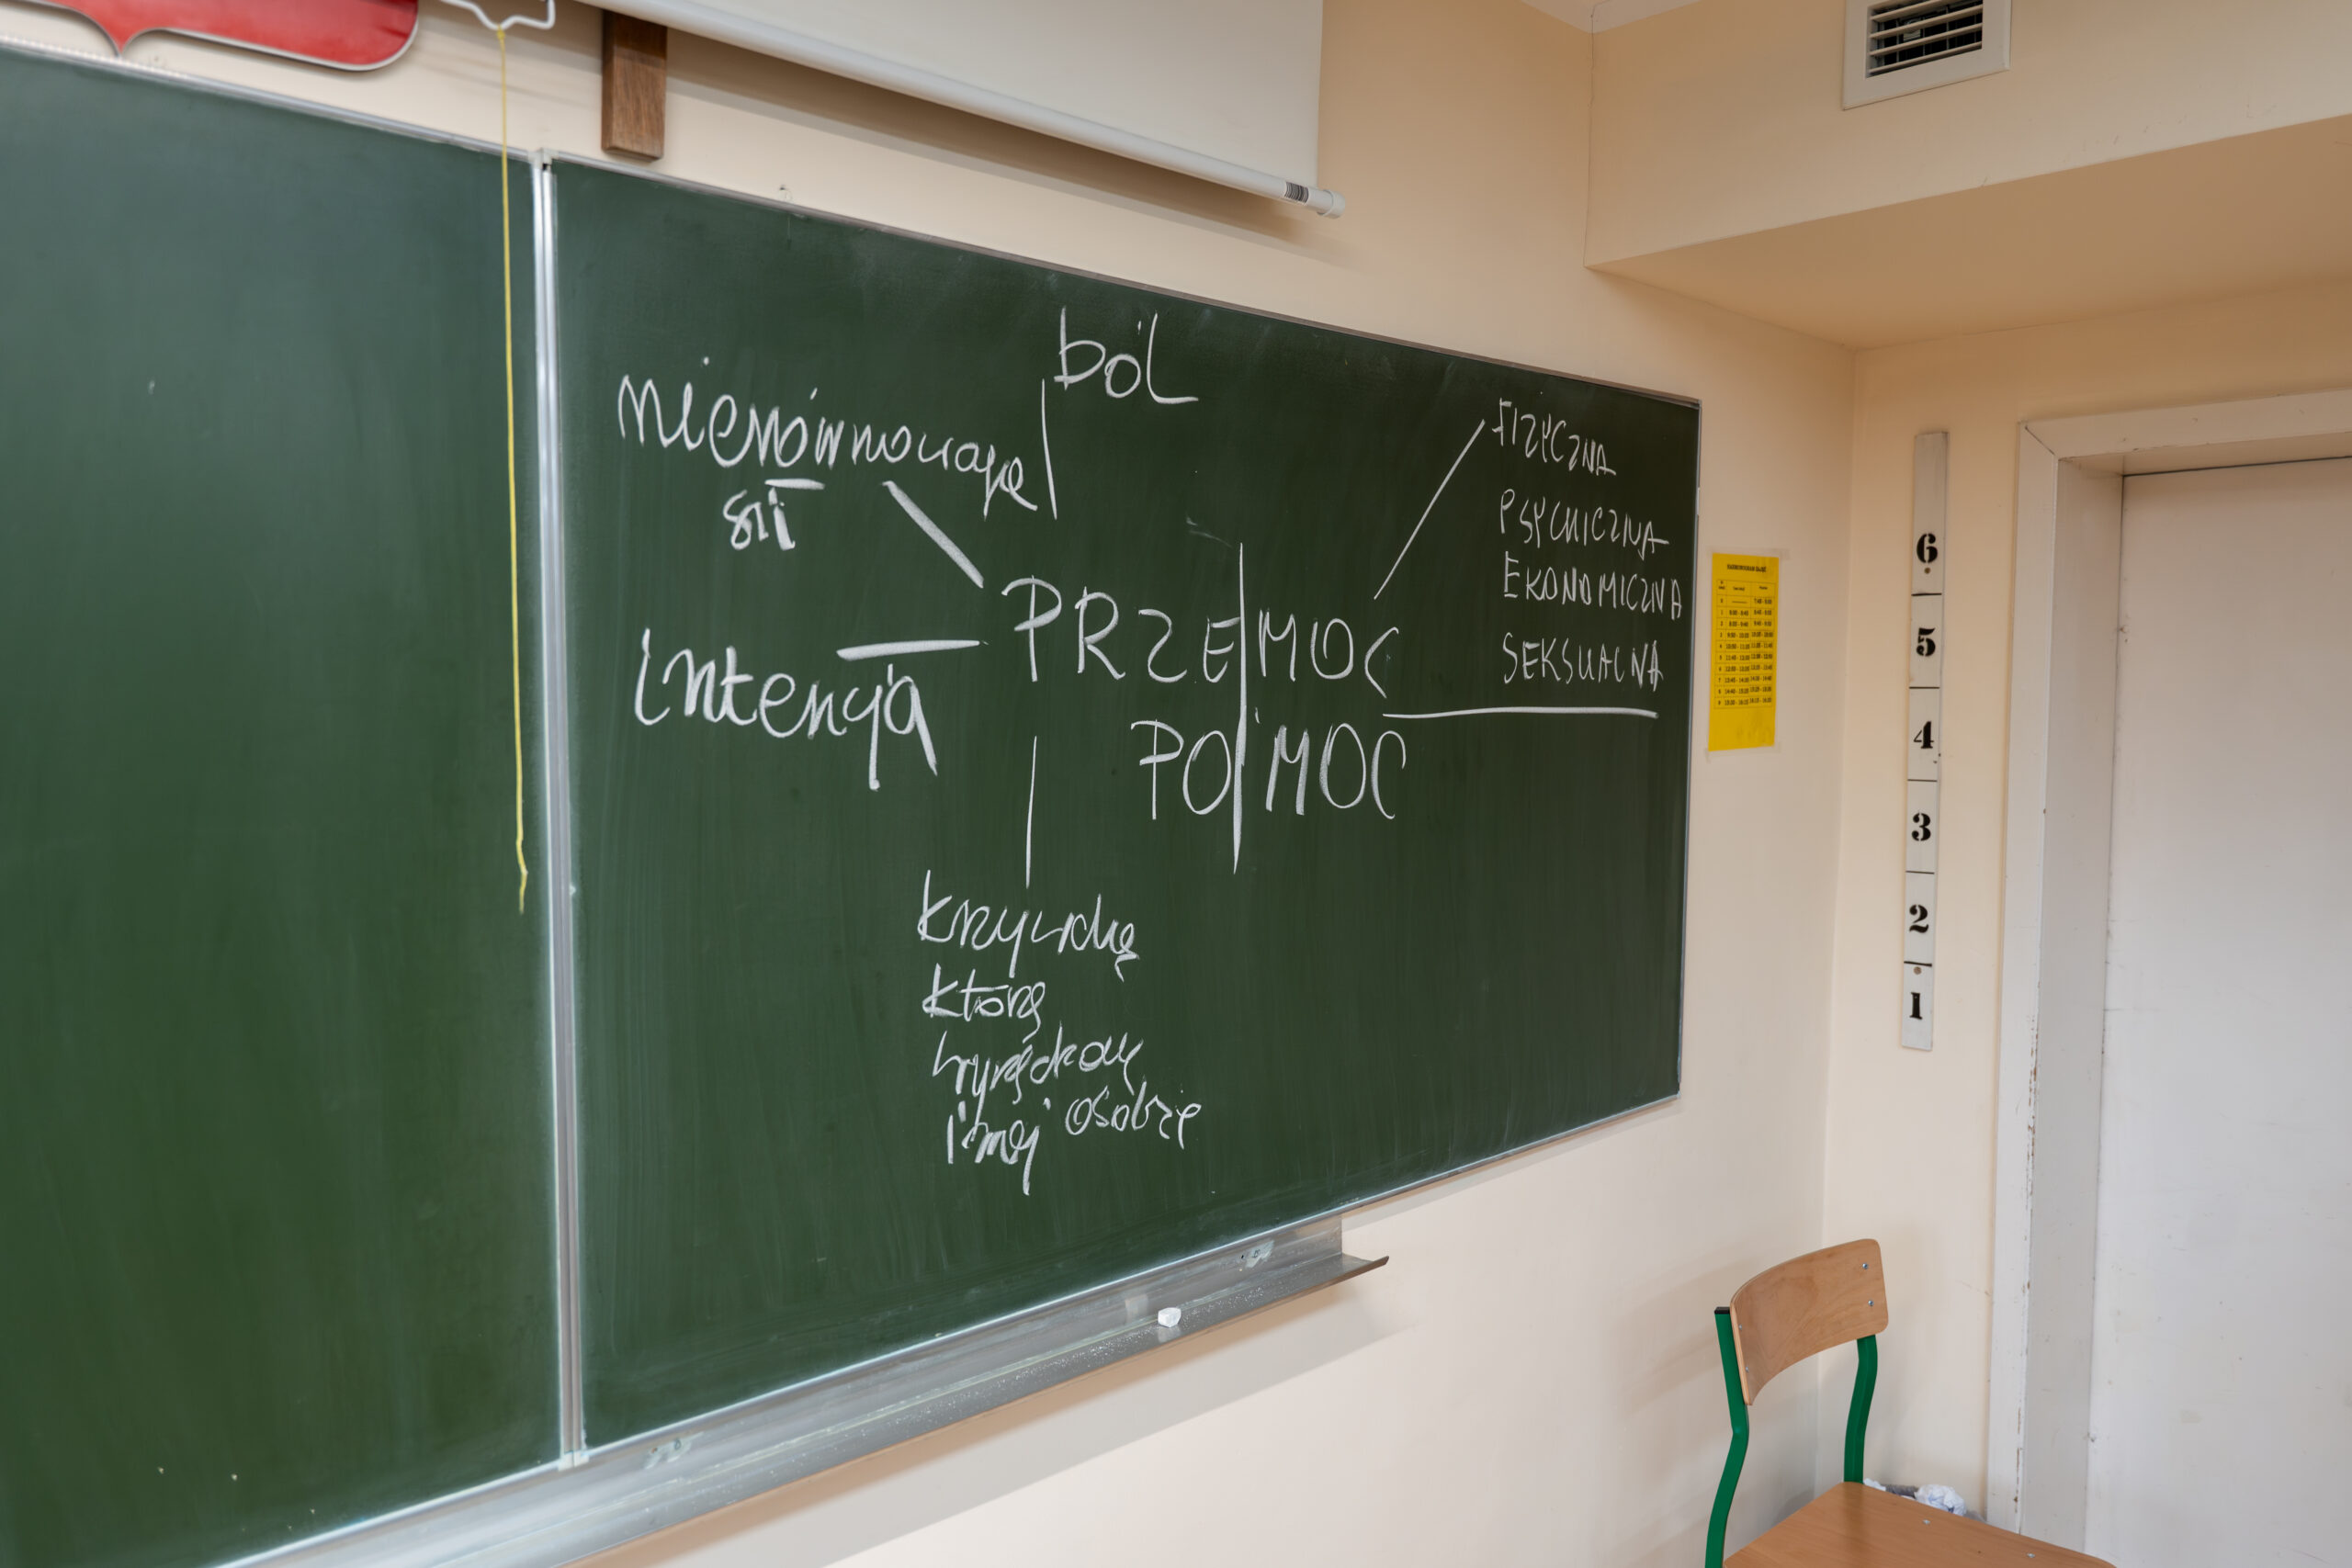 ból
nierównowaga
sił
FIZYCZNA
PSYCHICZNA
EKONOMICZNA
SEKSUALNA
PRZE|MOC
PO|MOC
intencja
krzywdę
którą
wyrządzamy
innej osobie
6
5
4
3
2
1